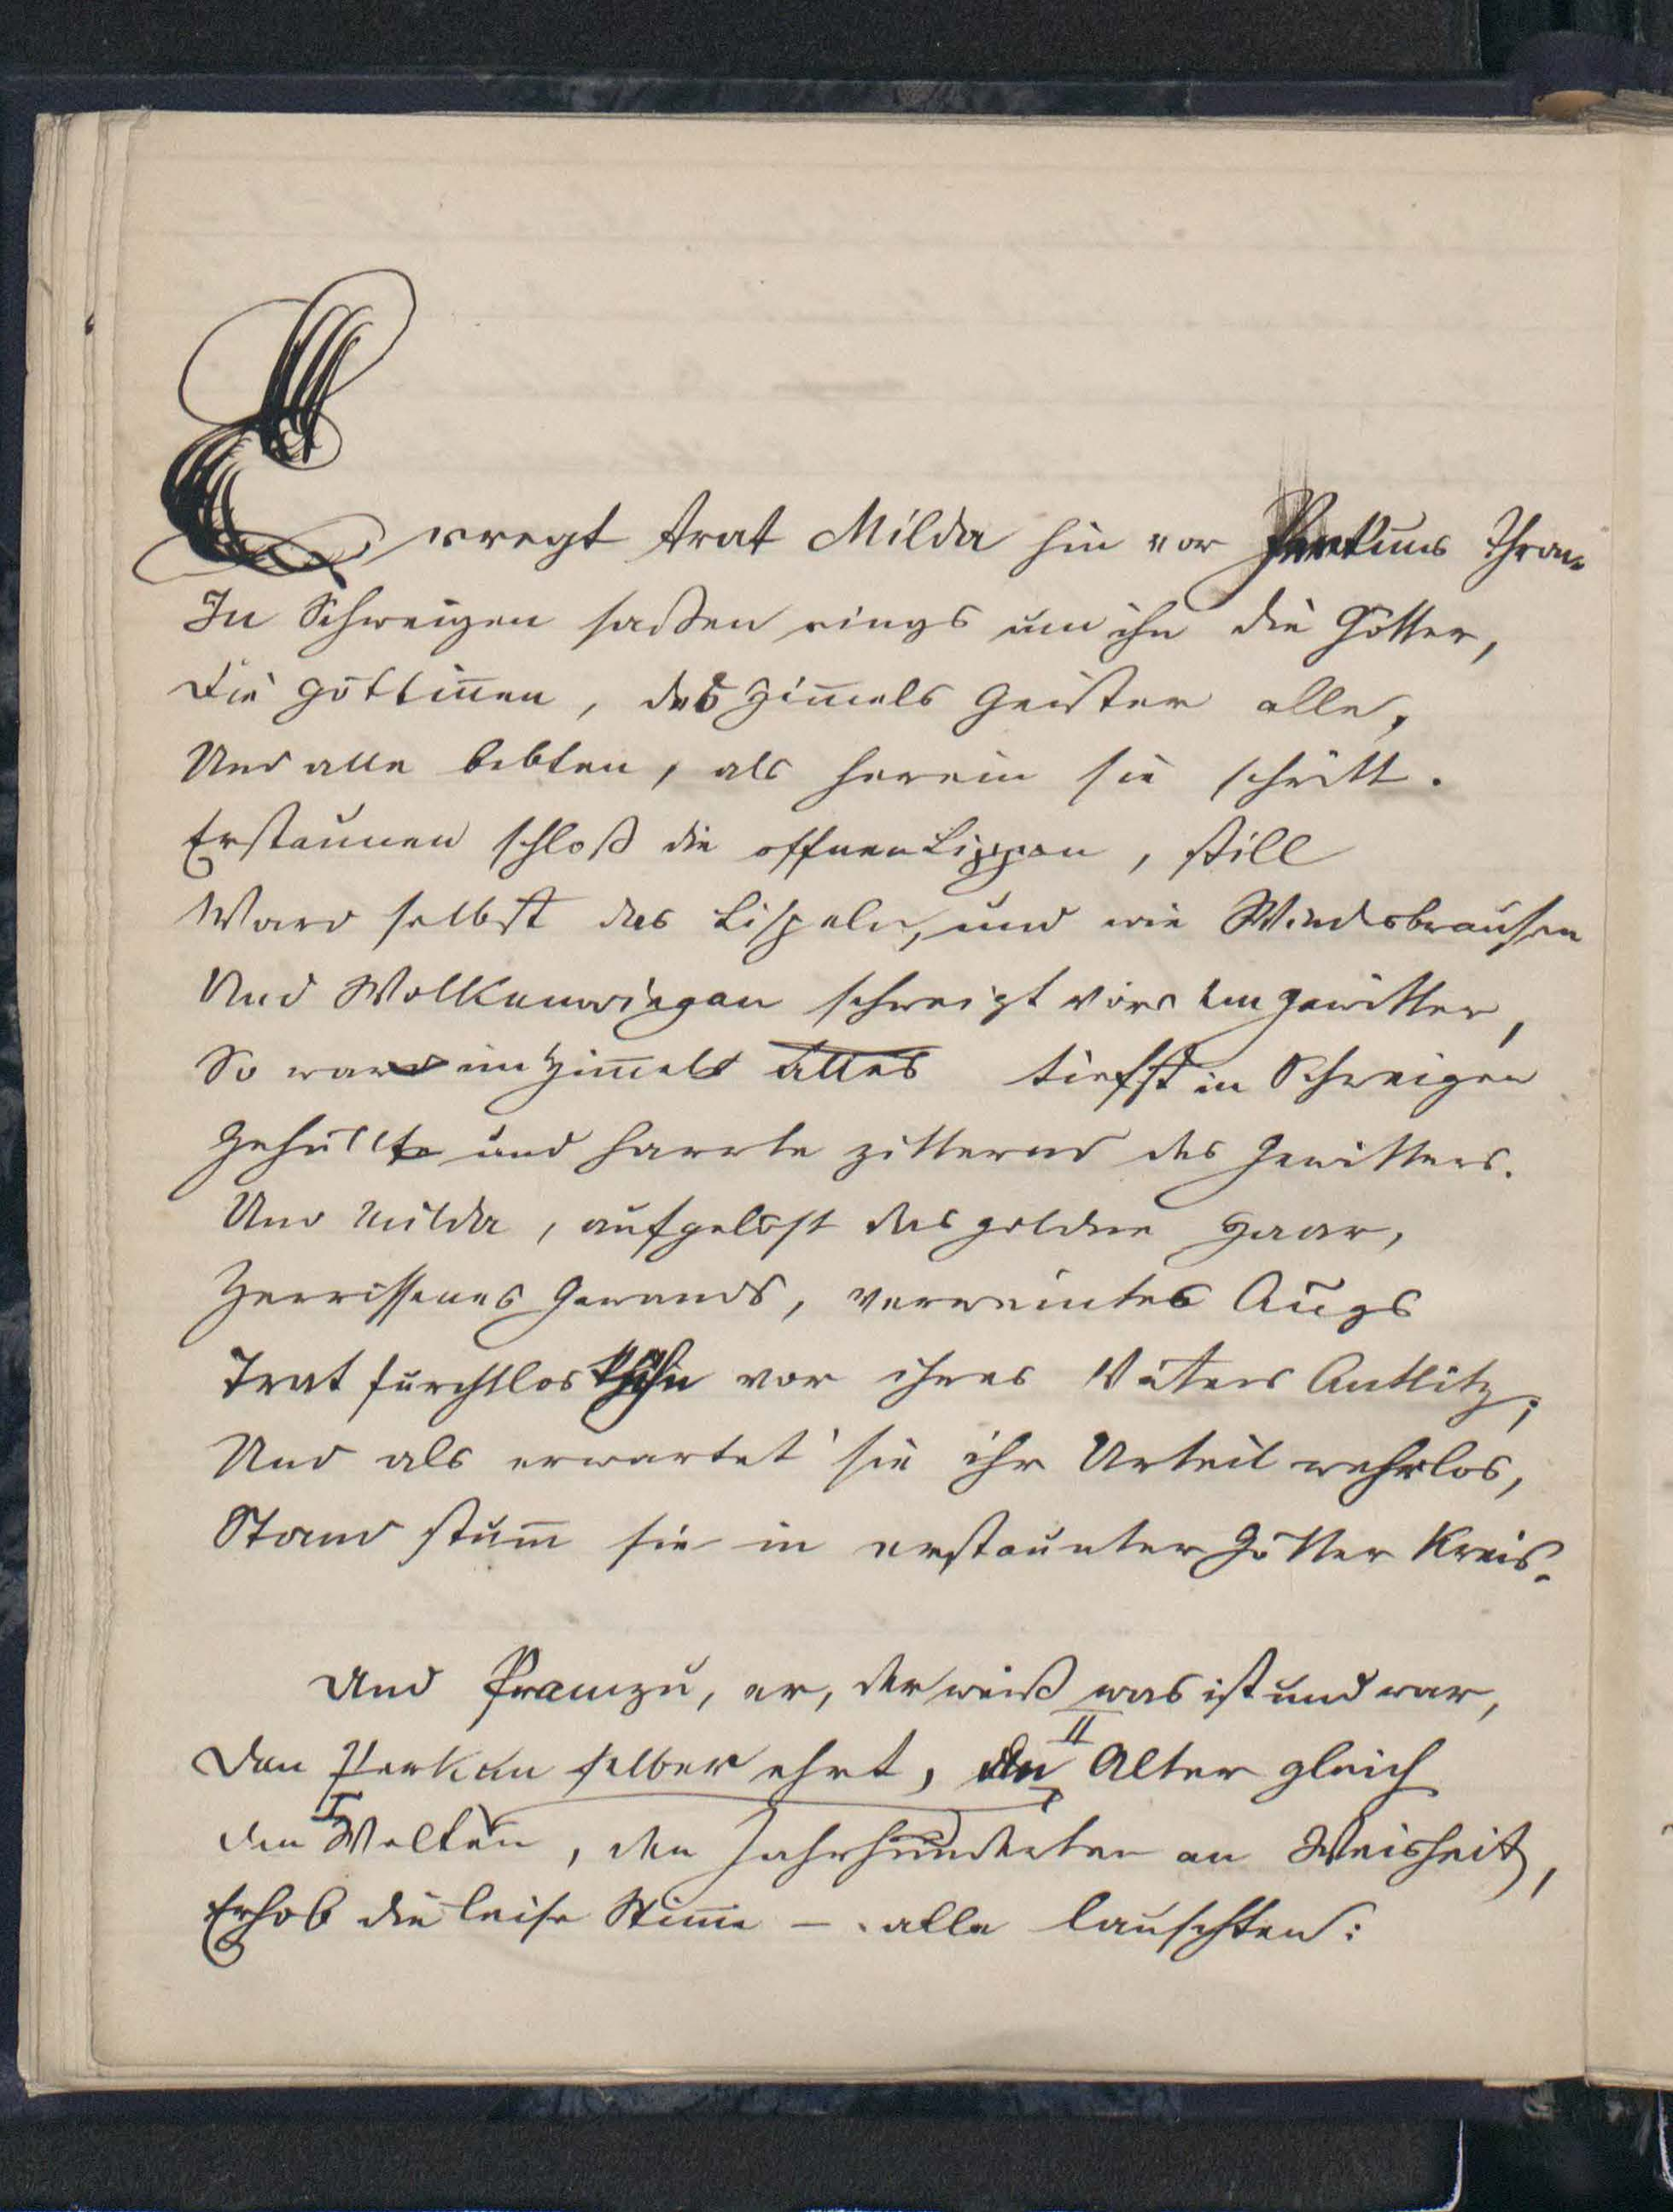 Erregt trat Milda hin vor Perkuns Thron.
In Schweigen saßen rings um ihn die Götter,
Die Göttin̄en, des Him̄els Geister alle,
Und alle bebten, als herein sie schritt.
Erstaunen schloß die offnen Lippen, still
Ward selbst das Lispeln, und wie Windsbrausen
Und Wolkenwiegen schweigt vorm Gewitter,
So ward im Him̄el alles tiefst in Schweigen
Gehüllt und harrte zitternd des Gewitters.
Und Milda, aufgelöst das goldne Haar,
Zerrissenes Gewands, verweintes Augs
Trat furchtlos hin vor ihres Vaters Antlitz;
Und als erwartet' sie ihr Urteil wehrlos,
Stand stum̄ sie in erstaunter Götter Kreis.
Und Pramzu, er, der weiß was ist und war,
Den Perkun selber ehrt, an II Alter gleich
den I Welten, den Jahrhunderten an Weisheit,
Erhob die leise Stim̄e – alle lauschten: